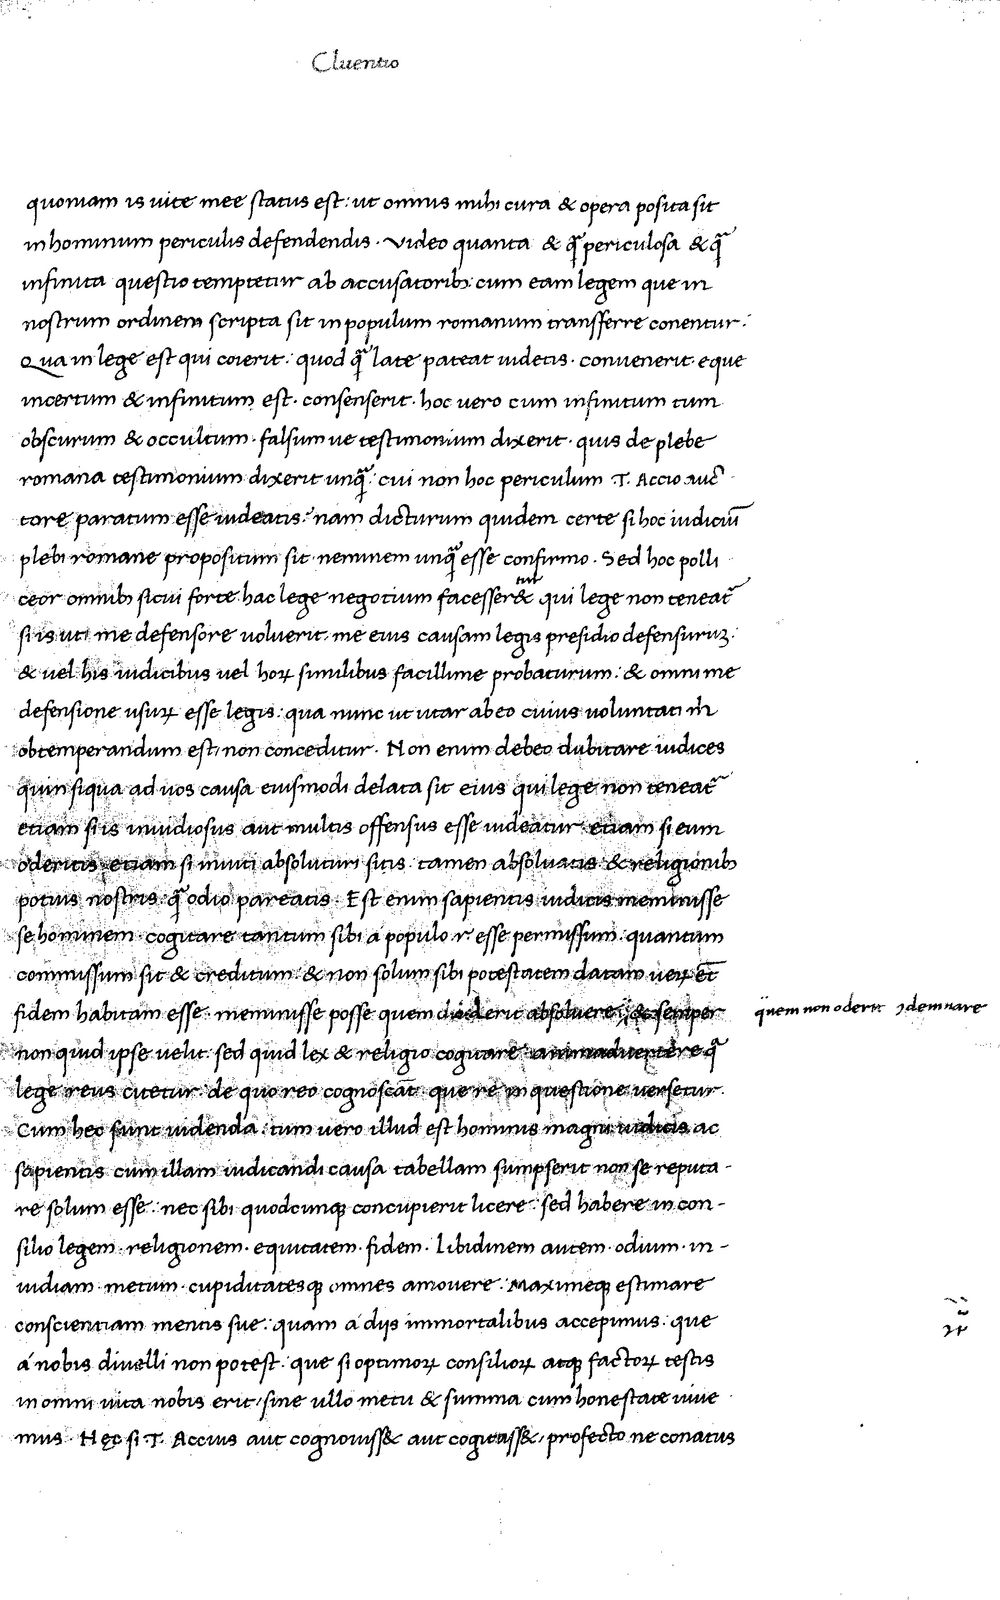 Cluentio
quoniam is vite mee status est: ut omnis mihi cura & opera posita sit
in hominum periculis defendendis. Video quanta & q̃ periculosa & q̃
infinita questio temptetur ab accusatorib: cum eam legem que in
nostrum ordinem scripta sit in populum romanum transferre conentur:
Qua in lege est qui coierit: quod q̃ late pateat uidetis. convenerit. eque
incertum & infinitum est. consenserit. hoc vero cum infinitum tum
obscurum & occultum. falsum ve testimonium dixerit. quis de plebe
romana testimonium dixerit unq̃: cui non hoc periculum T. Accio auc
tore paratum esse uideatis: nam dicturum quidem certe si hoc iudiciũ
plebi romane propositum sit neminem unq̃ esse confirmo. Sed hoc polli
ceor omnib; sicui forte hac lege negotium facesser& tur qui lege non teneat̃
si is uti me defensore voluerit. me eius causam legis presidio defensuruꝫ:
& vel his iudicibus vel hoꝝ similibus facillime probaturum: & omni me
defensione usuꝝ esse legis: qua nunc ut utar ab eo cuius voluntati m̃
obtemperandum est, non conceditur. Non enim debeo dubitare iudices
quin siqua ad vos causa eiusmodi delata sit eius qui lege non teneat̃
etiam si is invidiosus aut multis offensus esse uideatur. etiam si eum
oderitis etiam si inviti absoluturi sitis. tamen absolvatis & religionib;
potius nostris q̃ odio pareatis. Est enim sapientis iudicis meminisse
se hominem cogitare tantum sibi á populo r̃ esse permissum: quantum
commissum sit & creditum. & non solum sibi potestatem datam veꝝ et̃
fidem habitam esse. meminisse posse quem oderit absolvere; & semper
quem non oderit ꝯdemnare
non quid ipse velit. sed quid lex & religio cogitare animadvertere q̃
lege reus citetur. de quo reo cognoscat̃ que re in questione versetur.
Cum hec sunt uidenda. tum vero illud est hominis magni iudicis ac
sapientis cum illam iudicandi causa tabellam sumpserit non se reputa-
re solum esse: nec sibi quodcunqꝫ concupierit licere: sed habere in con-
silio legem. religionem. equitatem. fidem. Libidinem autem. odium. in-
uidiam. metum. cupiditatesqꝫ omnes amovere. Maximeqꝫ estimare
conscientiam mentis sue: quam á diis immortalibus accepimus. que
á nobis divelli non potest: que si optimoꝝ consilioꝝ atqꝫ factoꝝ testis
in omni vita nobis erit, sine ullo metu & summa cum honestate vive
mus. Hęc si T. Accius aut cognoviss& aut cogitass&, profecto ne conatus